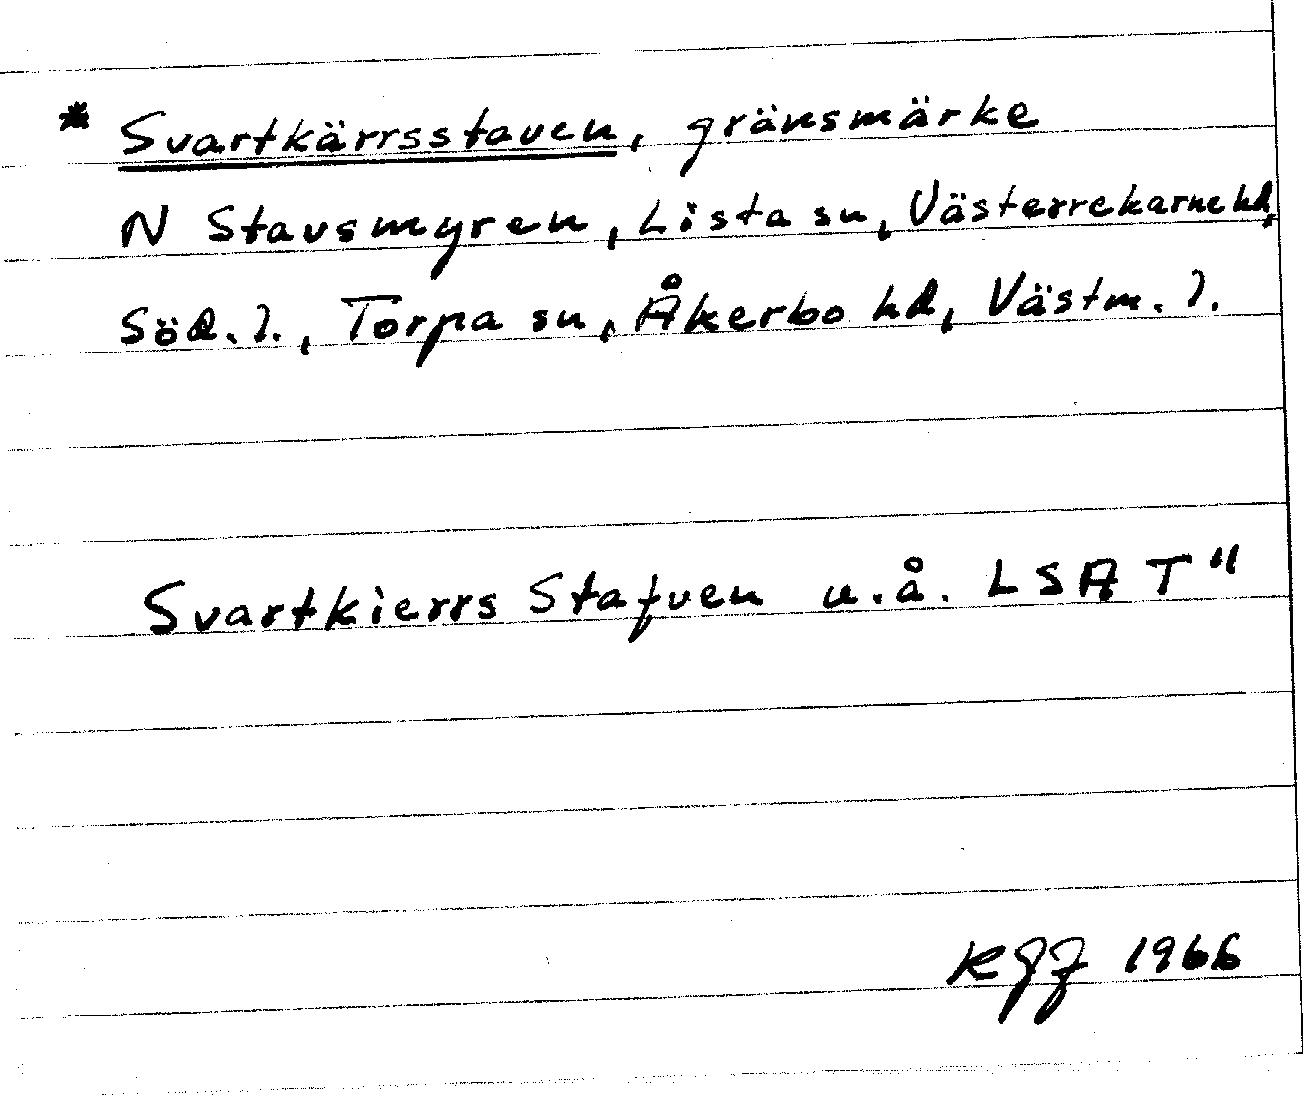 * Svartkärrsstaven, gränsmärke
N Stavsmyren, Lista sn, Västerrekarne hd,
Söd. l., Torpa sn, Åkerbo hd, Västm. l.
Svartkierrs Stafven u.å. LSA T"
KGJ 1966